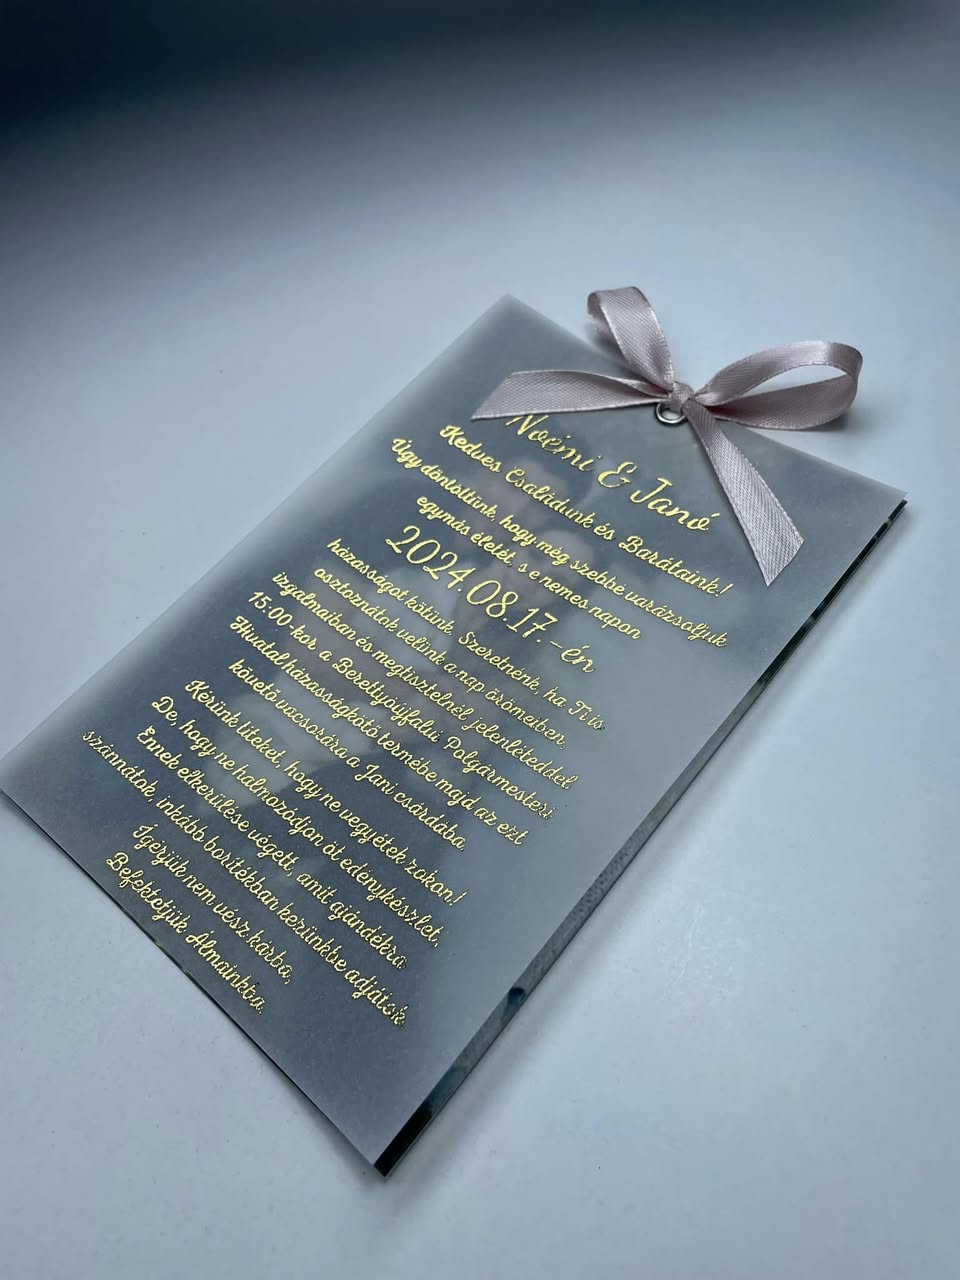 Noémi & Janó
Kedves Családunk és Barátaink!
Úgy döntöttünk, hogy még szebbé varázsoljuk
egymás életét, s e nemes napon
2024.08.17.-én
házasságot kötünk. Szeretnénk, ha Ti is
osztoznátok velünk a nap örömeiben,
izgalmaiban és megtisztelnél jelenléteddel
15:00-kor a Berettyóújfalui Polgármesteri
Hivatal házasságkötő termébe majd az ezt
követő vacsorára a Jani csárdába.
Kérünk titeket, hogy ne vegyétek zokon!
De, hogy ne halmozódjon öt edénykészlet,
Ennek elkerülése végett, amit ajándékra
szánnátok, inkább borítékban kezünkbe adjátok.
Ígérjük nem vész kárba,
Befektetjük Álmainkba.